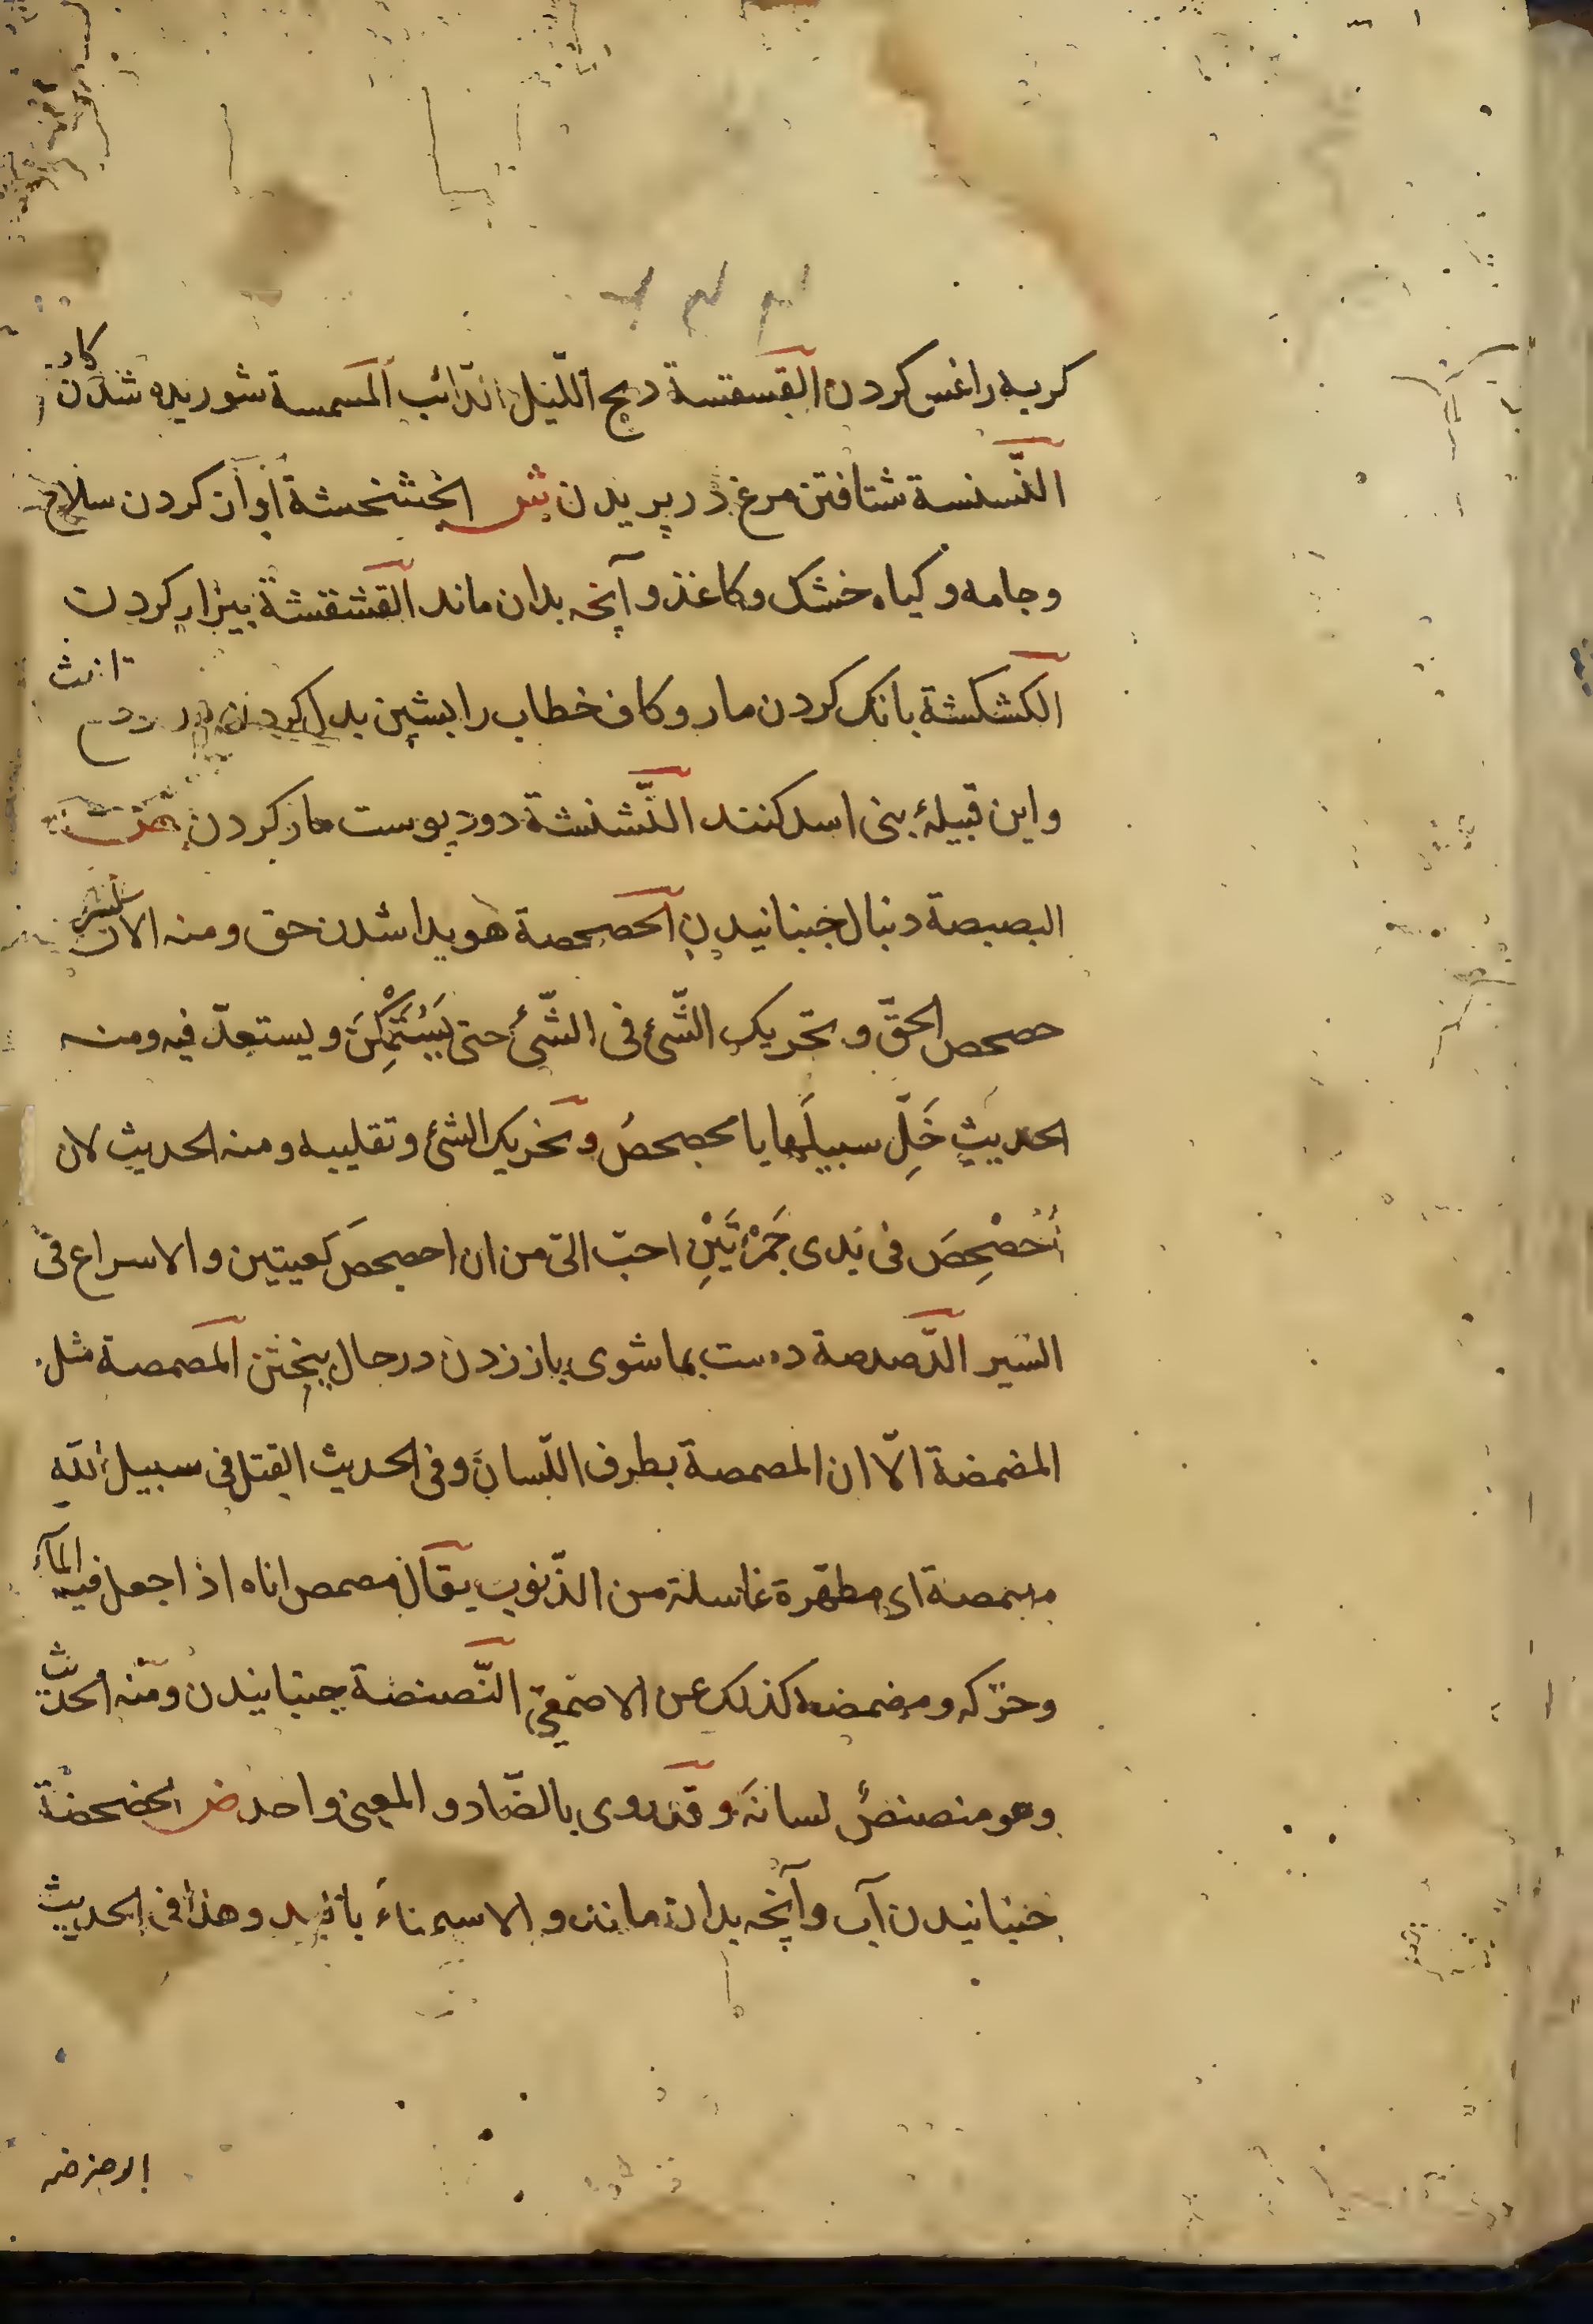 كربه راغس كردن القسقسة دلج اللّيل الدّائب المسمسة شوريده شدن كار
النّسنسة شتافتن مرغ در پريدن ش الخشخشة آواز كردن سلاح
وجامه وكياه خشك وكاغذ وآنچه بدان ماند القشقشة بيزار كردن
الكشكشة بانك كردن مار وكاف خطاب را بشين بدل كردن در
واين قبيلۀ بنى اسد كنند النّشنشة دور پوست باز كردن
البصبصة دنبال جنبانيدن الحصحصة هويدا شدن حق ومنه الان
حصحص الحقّ وتحريك الشّئ فى الشّئ حتى يَسْتَمْكِنَ ويستعدّ فيه ومنه
الحديث خَلِّ سبيلَها يا محصحصُ وتحريك الشئ وتقليبه ومنه الحديث لان
اُحَصْحِصَ فى يدى جَمْرَتَيْنِ احبّ الىّ من ان احصحصَ كعبتين والاسراع فى
السّير الدّصدصة دست بماشوى باز زدن در حال بيختن المصمصة مثل
المضمضة الّا ان المصمصة بطرف اللّسان وفى الحديث القتل فى سبيل اللّه
مصمصة اى مطهّرة غاسلة من الذّنوب يقال مصمص اناه اذا جعل فيه المآء
وحرّكه ومضمضه كذلك عن الاصمعىّ النّصنصة جنبانيدن ومنه الحديث
وهو منصنصُ لسانَه وقد روى بالضّاد والمعنى واحد ض الخضخضة
جنبانيدن آب وآنچه بدان ماند والاستمناء باليد وهذا فى الحديث